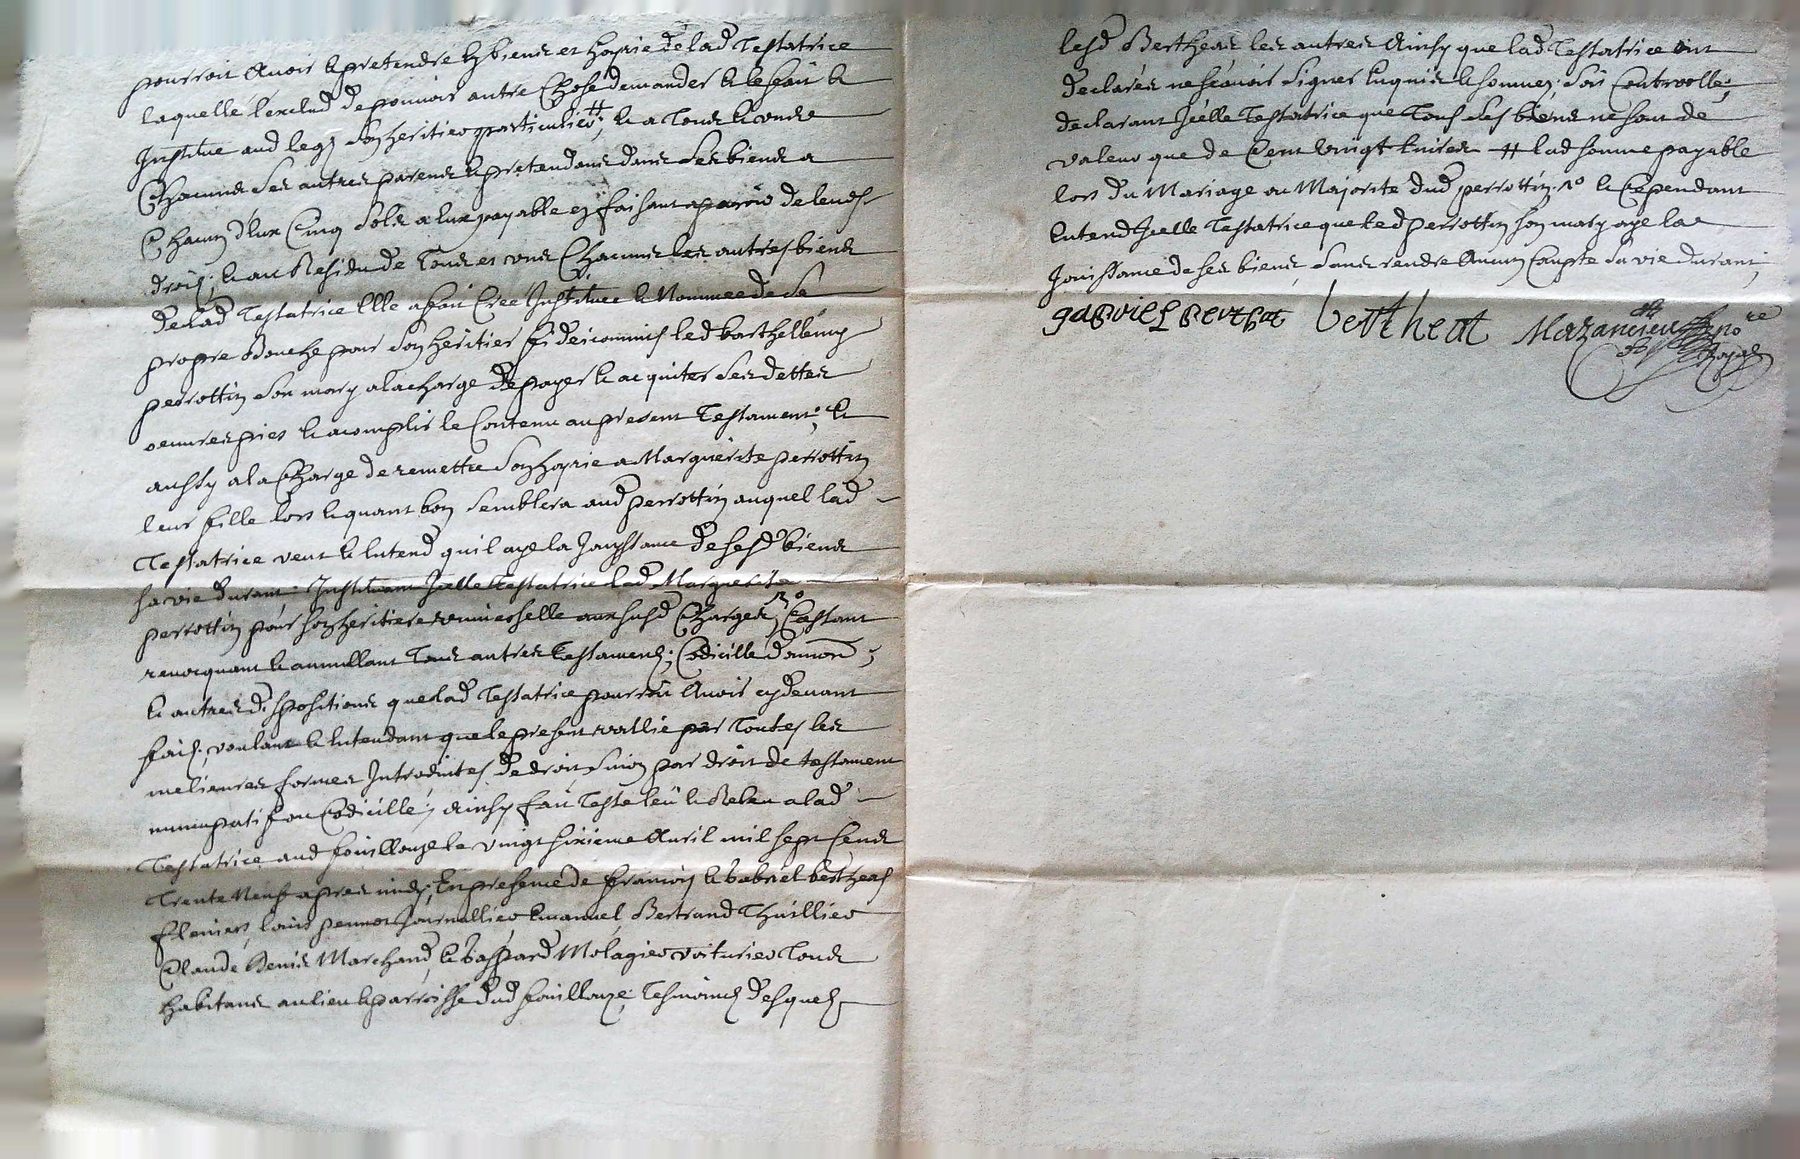 pourroit Avoir & pretendre Es biens et hoyrie de lad Testatrice
laquelle l'exclud de pouvoir autre Chose demander & le fait &
Institue aud legs son heritier particulier; # & a Tous & Voudre
Chacuns ses autres parens & pretendans dans ses biens a
Chacun d'Eux Cinq sols a Eux payable en faisant aparoir de leurs
droits; & au Residu de Tous et uns Chacuns les autres biens
de lad Testatrice Elle a fait Crée Instituee & Nommee de Sa
propre Bouche pour son heritier fideicommis led barthellemy
perrottin son mary a la charge de payer & acquiter ses dettes
oeuvres pies & acomplir le Contenu au present Testament; Et
aussy a la Charge de remettre son hoyrie a Marguerite perrottin
leur fille lors & quant bon semblera aud perrottin auquel lad
Testatrice veut & Entend qu'il aye la Jouyssance de sesd biens
sa vie durant. Instituant Icelle Testatrice lad Marguerite
perrottin pour son heritiere universelle aux susd Charges; no Cassant
revocquant & annullant Tous autres Testamens; Codicille donaon;
& autres dispositions que lad Testatrice pourroit Avoir cydevant
fait; voulant & Entendant que le present vallie par Toutes les
melieures formes Introduites de droit Sinon par droit de testament
nuncupatif ou Codicille; Ainsy fait Testé leu & Releu a lad
Testatrice aud fouillouze le vingt sixieme Avril mil sept Cens
Trente Neuf apres midy; En presence de françois & Gabriel bertheas
fleuiers, louis pennot Journallier Emanuel Bertrand Thuillier
Claude Denis Marchand & Gaspard Molagier voiturier Tous
habitans au lieu & parroisse dud fouillouze; Tesmoins desquels
lesd Bertheas les autres Ainsy que lad Testatrice ont
declarés ne sçavoir signer Enquis & sommes; soit Controollé;
declarant Icelle Testatrice que Tous ses biens ne sont de
valeur que de Cent vingt livres # lad somme payable
lors du Mariage ou Majorité dud perrottin. no & Cependant
Entend Icelle Testatrice que led perrottin son mary aye la
Jouissance de ses biens sans rendre Aucun Compte sa vie durant;
gabriel berthat bertheat Mazancieu nore
Royal